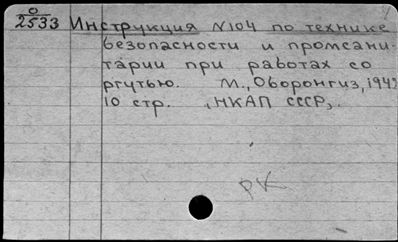 О
2533 Инструкция N104 по технике
безопасности и промсани-
тарии при работах со
ртутью. М., Оборонгиз, 1949
10 стр. (НКАП СССР).
РК